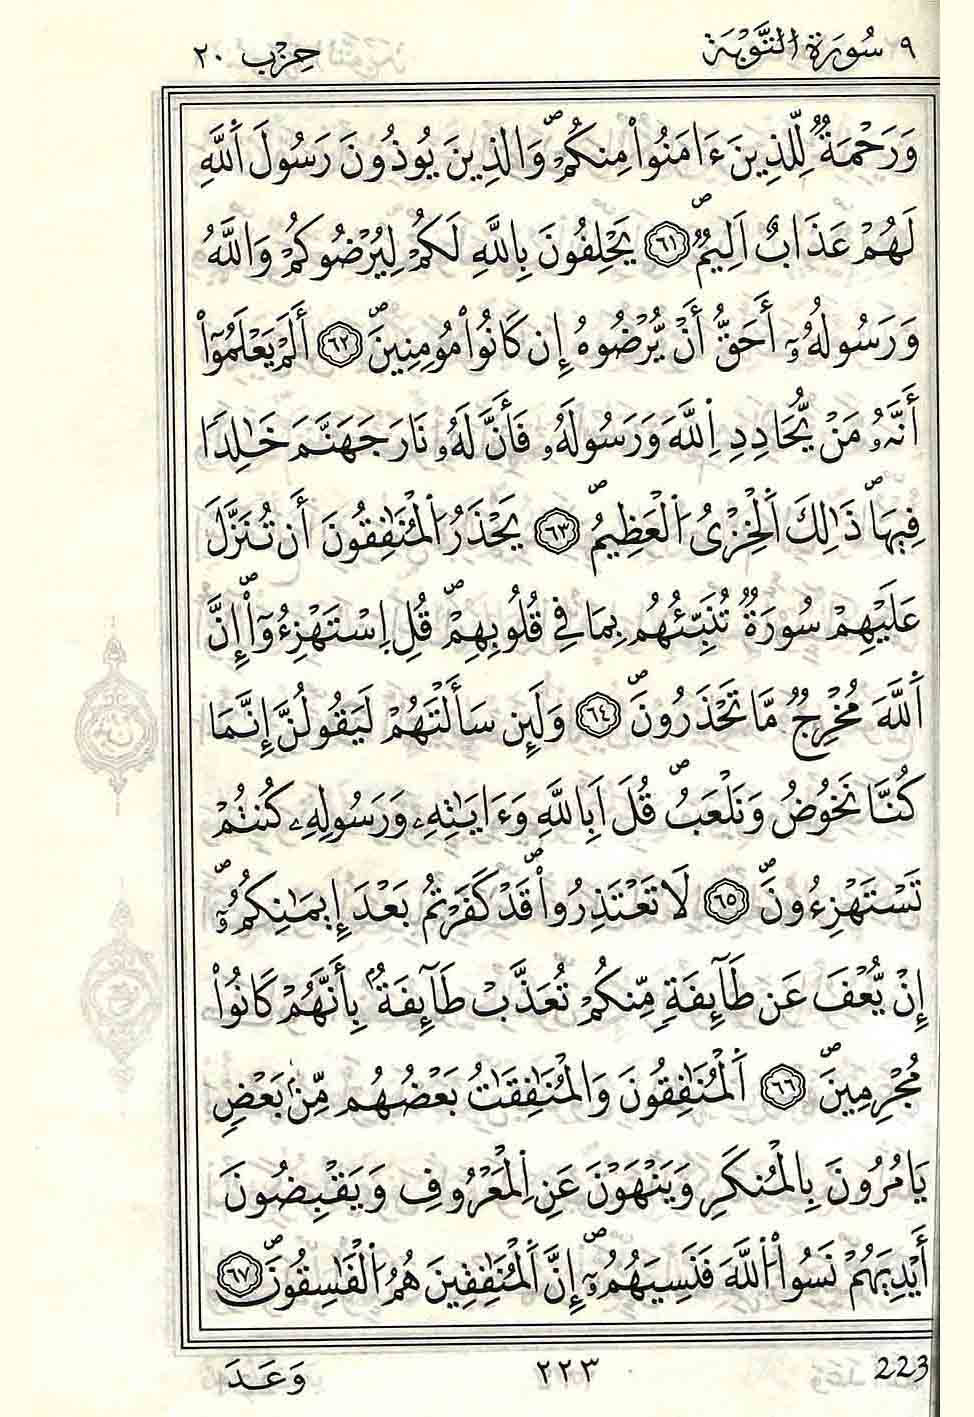 ٩ سُورَةُ التَّوْبَة حِزْب ٢٠
وَرَحْمَةٌ لِّلَّذِينَ ءَامَنُواْ مِنكُمْ وَالذِينَ يُوذُونَ رَسُولَ اَ۬للَّهِ
لَهُمْ عَذَابٌ اَلِيمٌ ٦١ يَحْلِفُونَ بِاللَّهِ لَكُمْ لِيُرْضُوكُمْ وَاللَّهُ
وَرَسُولُهُۥٓ أَحَقُّ أَنْ يُّرْضُوهُ إِن كَانُواْ مُومِنِينَ ٦٢ أَلَمْ يَعْلَمُوٓاْ
أَنَّهُۥ مَنْ يُّحَادِدِ اِ۬للَّهَ وَرَسُولَهُۥ فَأَنَّ لَهُۥ نَارَ جَهَنَّمَ خَٰلِداً
فِيهَا ذَٰلِكَ اَ۬لْخِزْىُ اُ۬لْعَظِيمُ ٦٣ يَحْذَرُ اُ۬لْمُنَٰفِقُونَ أَن تُنَزَّلَ
عَلَيْهِمْ سُورَةٌ تُنَبِّئُهُم بِمَا فِے قُلُوبِهِمْ قُلِ اِ۪سْتَهْزِءُوٓاْ إِنَّ
اَ۬للَّهَ مُخْرِجٌ مَّا تَحْذَرُونَ ٦٤ وَلَئِن سَأَلْتَهُمْ لَيَقُولُنَّ إِنَّمَا
كُنَّا نَخُوضُ وَنَلْعَبُ قُلَ اَبِاللَّهِ وَءَايَٰتِهِۦ وَرَسُولِهِۦ كُنتُمْ
تَسْتَهْزِءُونَ ٦٥ لَا تَعْتَذِرُواْ قَدْ كَفَرْتُم بَعْدَ إِيمَٰنِكُمُۥٓ
إِنْ يُّعْفَ عَن طَآئِفَةٍ مِّنكُمْ تُعَذَّبْ طَآئِفَةٌۢ بِأَنَّهُمْ كَانُواْ
مُجْرِمِينَ ٦٦ اَ۬لْمُنَٰفِقُونَ وَالْمُنَٰفِقَٰتُ بَعْضُهُم مِّنۢ بَعْضٍ
يَامُرُونَ بِالْمُنكَرِ وَيَنْهَوْنَ عَنِ اِ۬لْمَعْرُوفِ وَيَقْبِضُونَ
أَيْدِيَهُمْ نَسُواْ اُ۬للَّهَ فَنَسِيَهُمُۥٓ إِنَّ اَ۬لْمُنَٰفِقِينَ هُمُ اُ۬لْفَٰسِقُونَ ٦٧
وَعَدَ ٢٢٣ 223